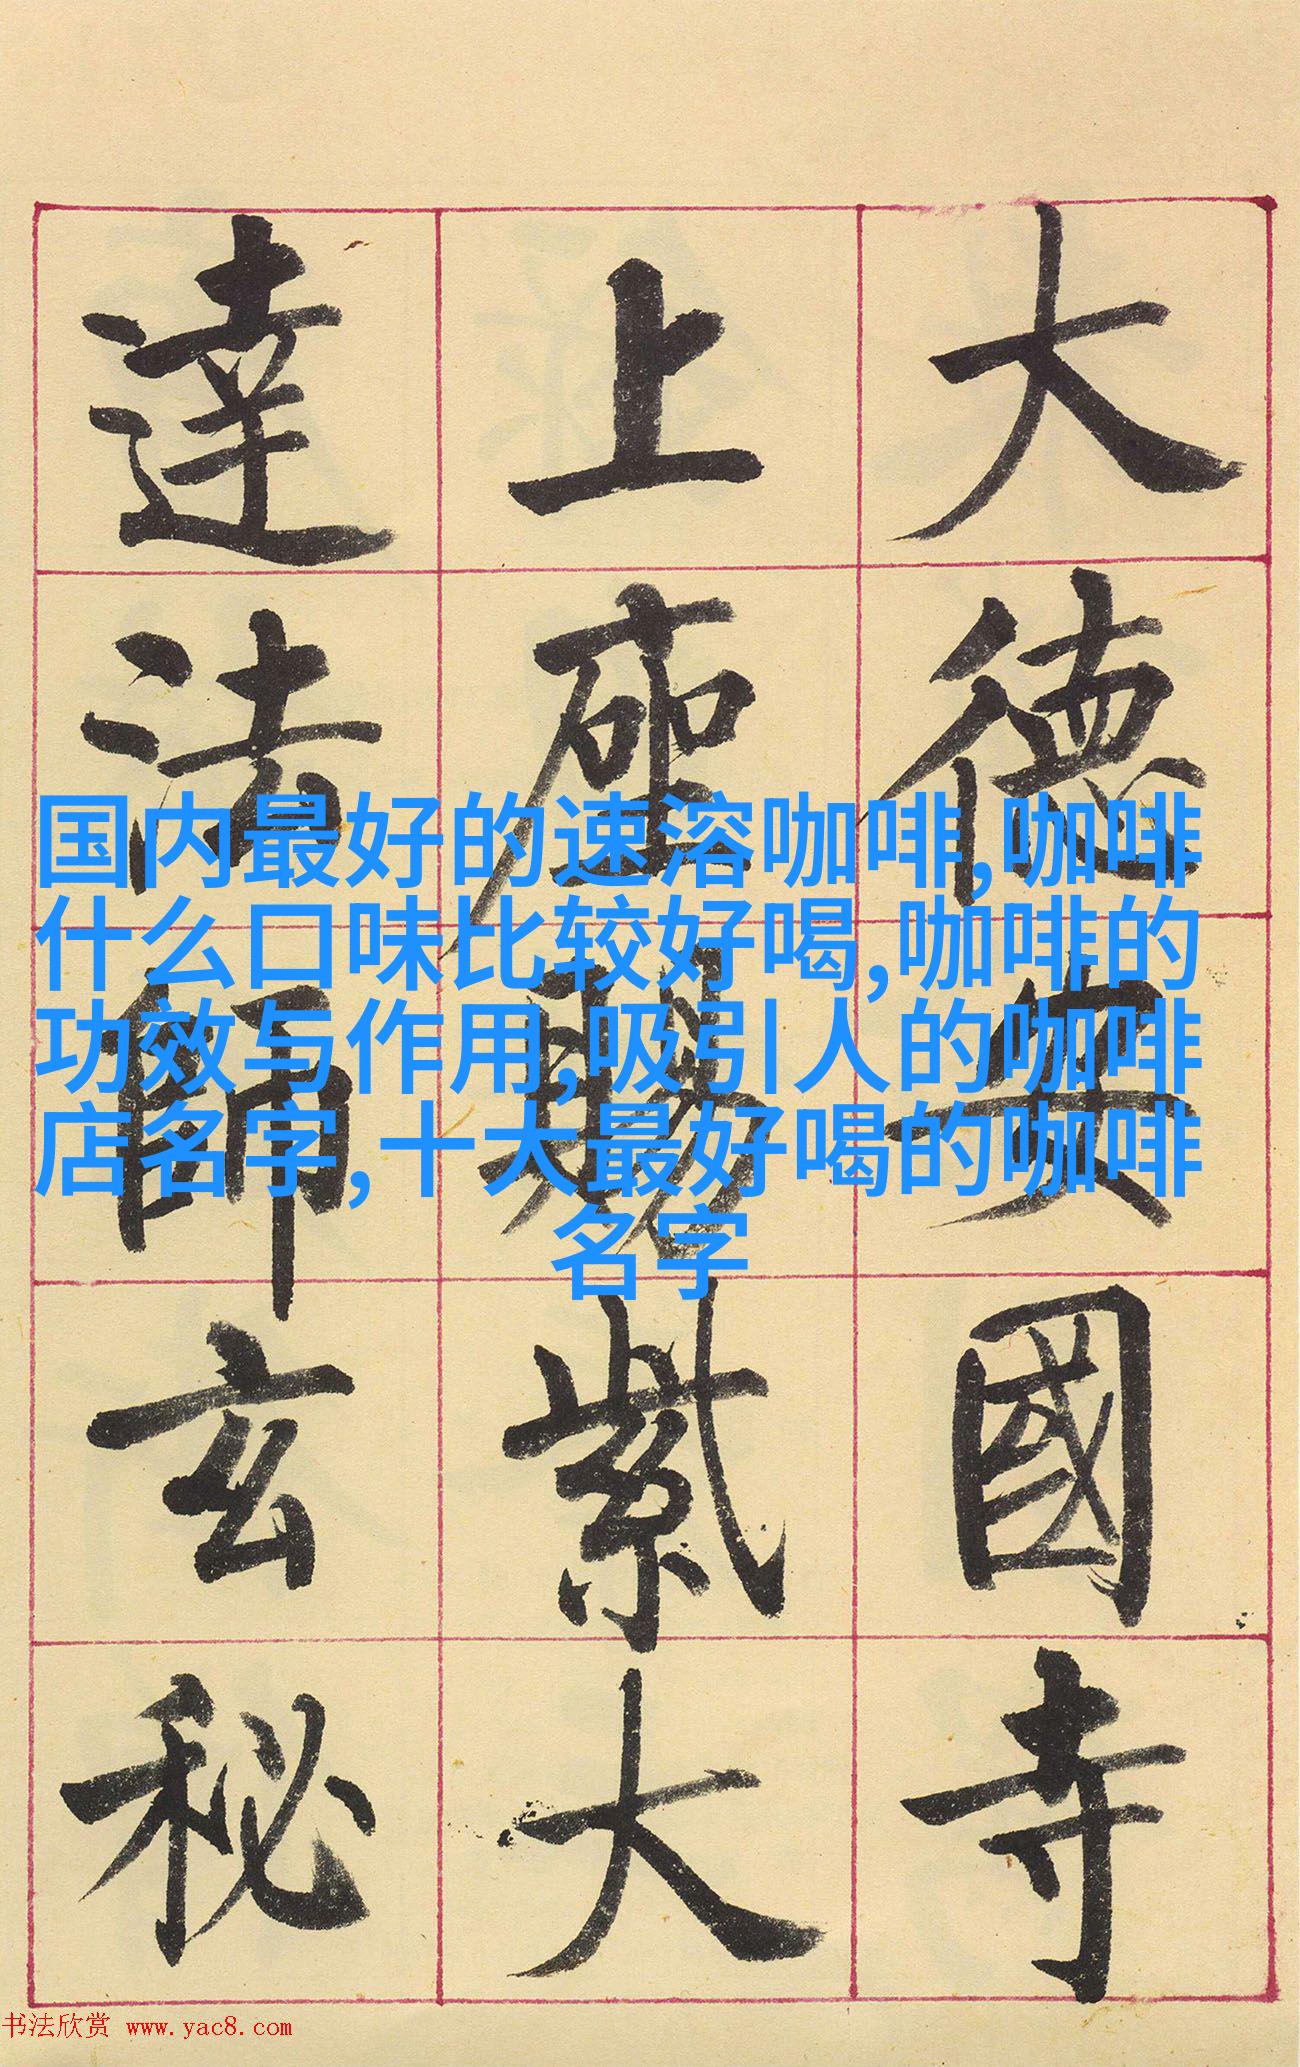 大德安國寺
上座賜紫大
達法師玄秘
国内最好的速溶咖啡,咖啡
什么口味比较好喝,咖啡的
功效与作用,吸引人的咖啡
店名字,十大最好喝的咖啡
名字
书法欣赏 www.yac8.com